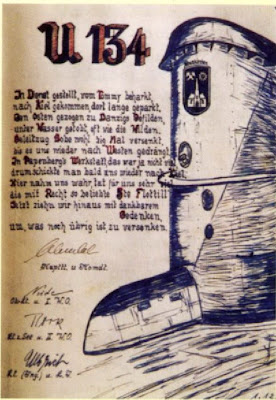 U 134
In Dienst gestellt, vom Emmy beharkt,
nach Kiel gekommen, dort lange geparkt,
Gen Osten gezogen zu Danzigs Gefilden,
unter Wasser getobt oft wie die Wilden.
Geleitzug Gobe wohl big Mal versenkt,
bis es uns wieder nach Westen gedrängt.
In Papenberg's Werkstatt, das war ja nicht viel
drum schickte man bald uns wieder nach Kiel.
Hier nahm uns wahrhaft für uns sehr viel
die mit Recht so beliebte 5te Flottill
Jetzt ziehn wir hinaus mit dankbarem
Gedenken,
um, was noch übrig ist zu versenken.
Kaptlt. u. Komdt.
Oblt. u. I W.O.
Lt. z. See u. II W.O.
Lt. (Ing.) u. L.I.